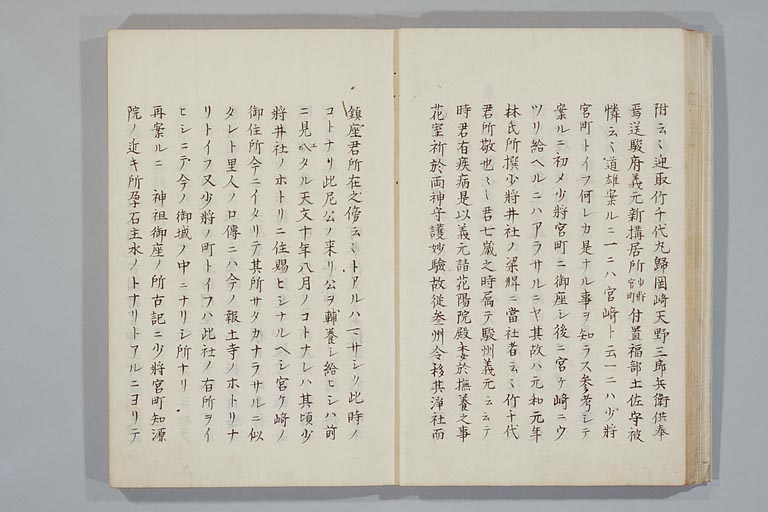 附云々迎取竹千代丸歸岡﨑天野三郎兵衛供奉
焉送駿府義元新搆居所少将宮町付置福部土佐守被
憐云々道雄案ルニ一ニハ宮﨑ト云一ニハ少將
宮町トイフ何レカ是ナル事ヲ知ラス参考シテ
案ルニ初メ少將宮町ニ御座シ後ニ宮ケ﨑ニウ
ツリ給ヘルニハアラサルニヤ其故ハ元和元年
林氏所撰少將井社ノ梁牌ニ當社者云々竹千代
君所敬也云々君七歳之時属テ駿州義元云云テ
時君有疾病是以義元請花陽院殿委於撫養之事
花室祈於両神守護妙驗故従叄州令移其淨社而
鎮座君所在之傍云々トアルハマサシク此時ノ
コトナリ此尼公ノ来リ公ヲ輔養シ給ヒシハ前
ニ見ヘタル天文十年八月ノコトナレハ其頃少
將井社ノホトリニ住賜ヒシナルヘシ宮ケ﨑ノ
御住所今ニイタリテ其所サタカナラサルニ似
タレト里人ノ口傳ニハ今ノ報土寺ノホトリナ
リトイフ又少將ノ町トイフハ此社ノ有所ヲイ
ヒシニテ今ノ御城ノ中ニナリシ所ナリ
再案ルニ　神祖御座ノ所古記ニ少將宮町知源
院ノ近キ所孕石主水ノトナリトアルニヨリテ